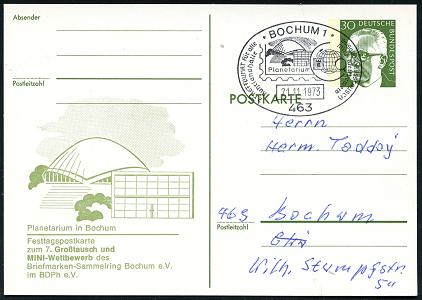 Absender
Postleitzahl
BOCHUM 1
Planetarium
21.11.1973
463
30
DEUTSCHE
BUNDESPOST
POSTKARTE
Herrn
Herm.
463 Bochum
Postleitzahl
Wilh.
Planetarium in Bochum
Festtagspostkarte
zum 7. Großtausch und
MINI-Wettbewerb des
Briefmarken-Sammelring Bochum e.V.
im BDPh e.V.